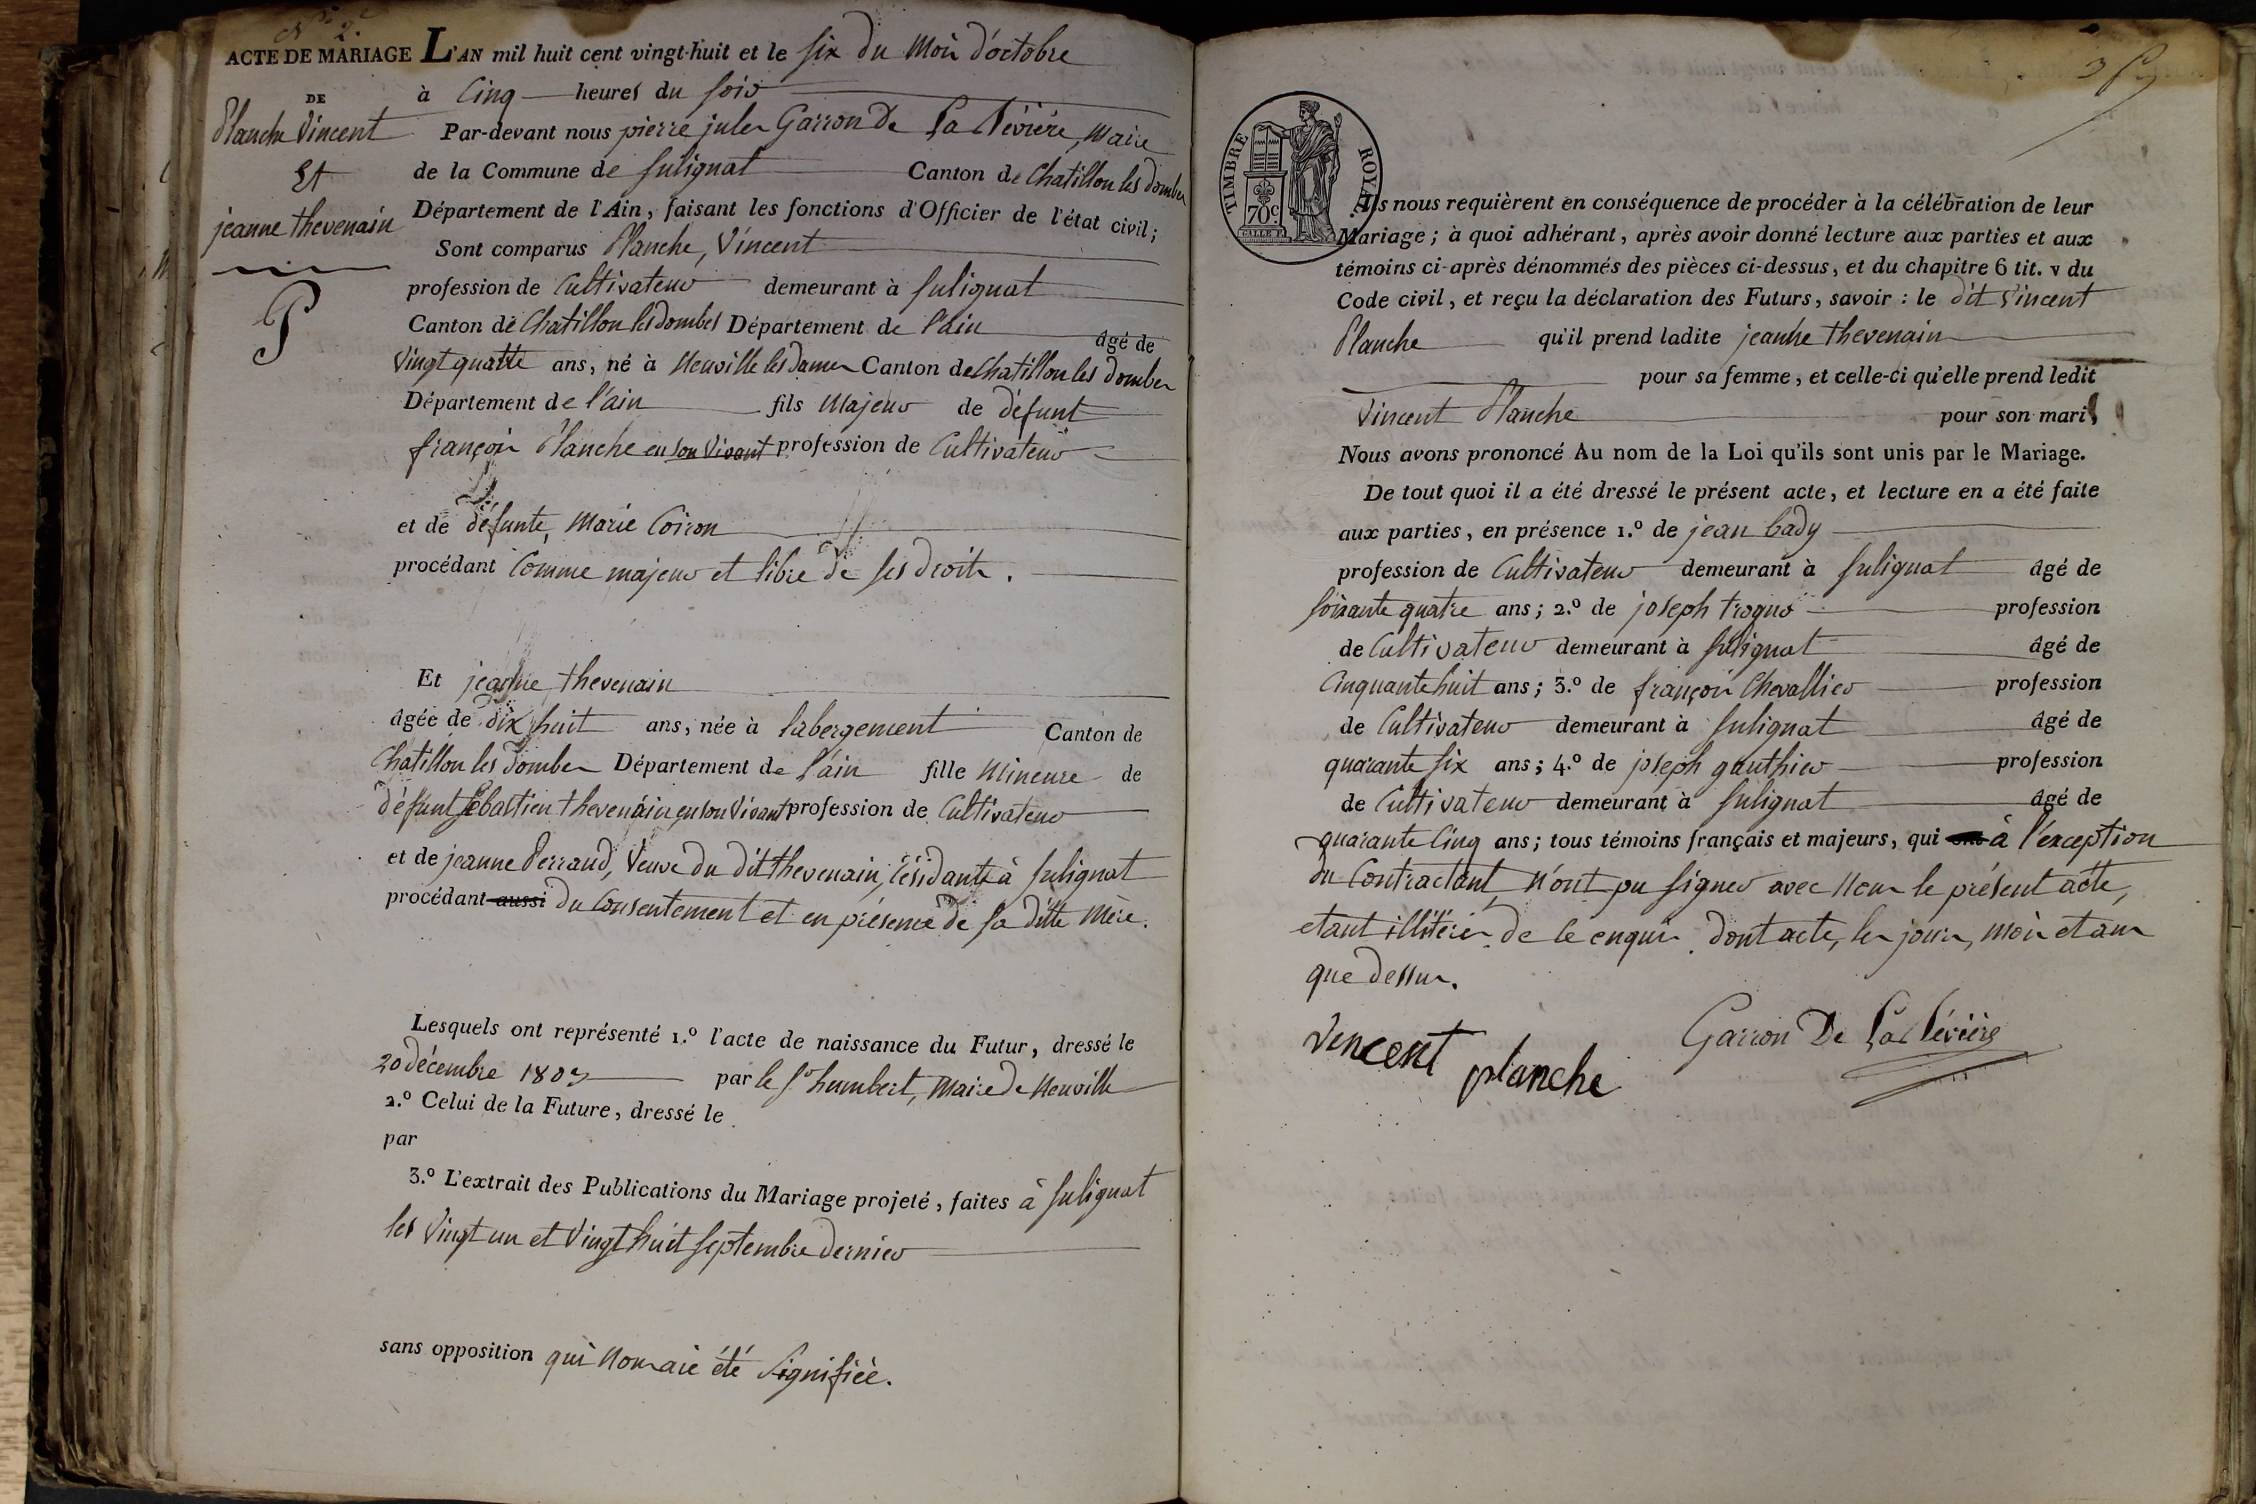 N.º 2.e
ACTE DE MARIAGE L'AN mil huit cent vingt-huit et le six du mois d'octobre
DE
à Cinq heures du soir
Planche Vincent
Par-devant nous pierre jules Garron De La Bévière, maire
Et
de la Commune de sulignat Canton de Chatillon les dombes
jeanne thevenain
Département de l'Ain, faisant les fonctions d'Officier de l'état civil;
Sont comparus Planche, Vincent
profession de Cultivateur demeurant à sulignat
P
Canton de Chatillon les dombes Département de l'ain âgé de
Vingt quatre ans, né à Neuville les Dames Canton de Chatillon les dombes
Département de l'ain fils majeur de défunt
françois Planche en son Vivant profession de Cultivateur
et de défunte, Marie Coiron
procédant Comme majeur et libre de ses droits.
Et jeanne thevenain
âgée de dix huit ans, née à labergement Canton de
Chatillon les Dombes Département de l'ain fille mineure de
défunt sébastien thevenain en son Vivant profession de Cultivateur
et de jeanne Perraud, Veuve du dit thevenain, résidante à sulignat
procédant aussi du Consentement et en présence de sa ditte Mère.
Lesquels ont représenté 1.º l'acte de naissance du Futur, dressé le
20 décembre 1803 par le sr humbert, Maire de Neuville
2.º Celui de la Future, dressé le
par
3.º L'extrait des Publications du Mariage projeté, faites à sulignat
les Vingt un et Vingt huit septembre dernier
sans opposition qui nous aie été signifiée.
3
TIMBRE ROYAL
70 c.
Ils nous requièrent en conséquence de procéder à la célébration de leur
Mariage; à quoi adhérant, après avoir donné lecture aux parties et aux
témoins ci-après dénommés des pièces ci-dessus, et du chapitre 6 tit. v du
Code civil, et reçu la déclaration des Futurs, savoir : le dit Vincent
Planche qu'il prend ladite jeanne thevenain
pour sa femme, et celle-ci qu'elle prend ledit
Vincent Planche pour son mari,
Nous avons prononcé Au nom de la Loi qu'ils sont unis par le Mariage.
De tout quoi il a été dressé le présent acte, et lecture en a été faite
aux parties, en présence 1.º de jean bady
profession de Cultivateur demeurant à sulignat âgé de
soixante quatre ans; 2.º de joseph trognó profession
de Cultivateur demeurant à sulignat âgé de
Cinquante huit ans; 3.º de françois Chevallier profession
de Cultivateur demeurant à sulignat âgé de
quarante six ans; 4.º de joseph gauthier profession
de Cultivateur demeurant à sulignat âgé de
quarante Cinq ans; tous témoins français et majeurs, qui ont à l'exception
du Contractant n'ont pu signer avec Nous le présent acte,
étant illitérés de ce enquis. dont acte, les jours, mois et ans
que dessus.
Vencent planche
Garron De La Bévière